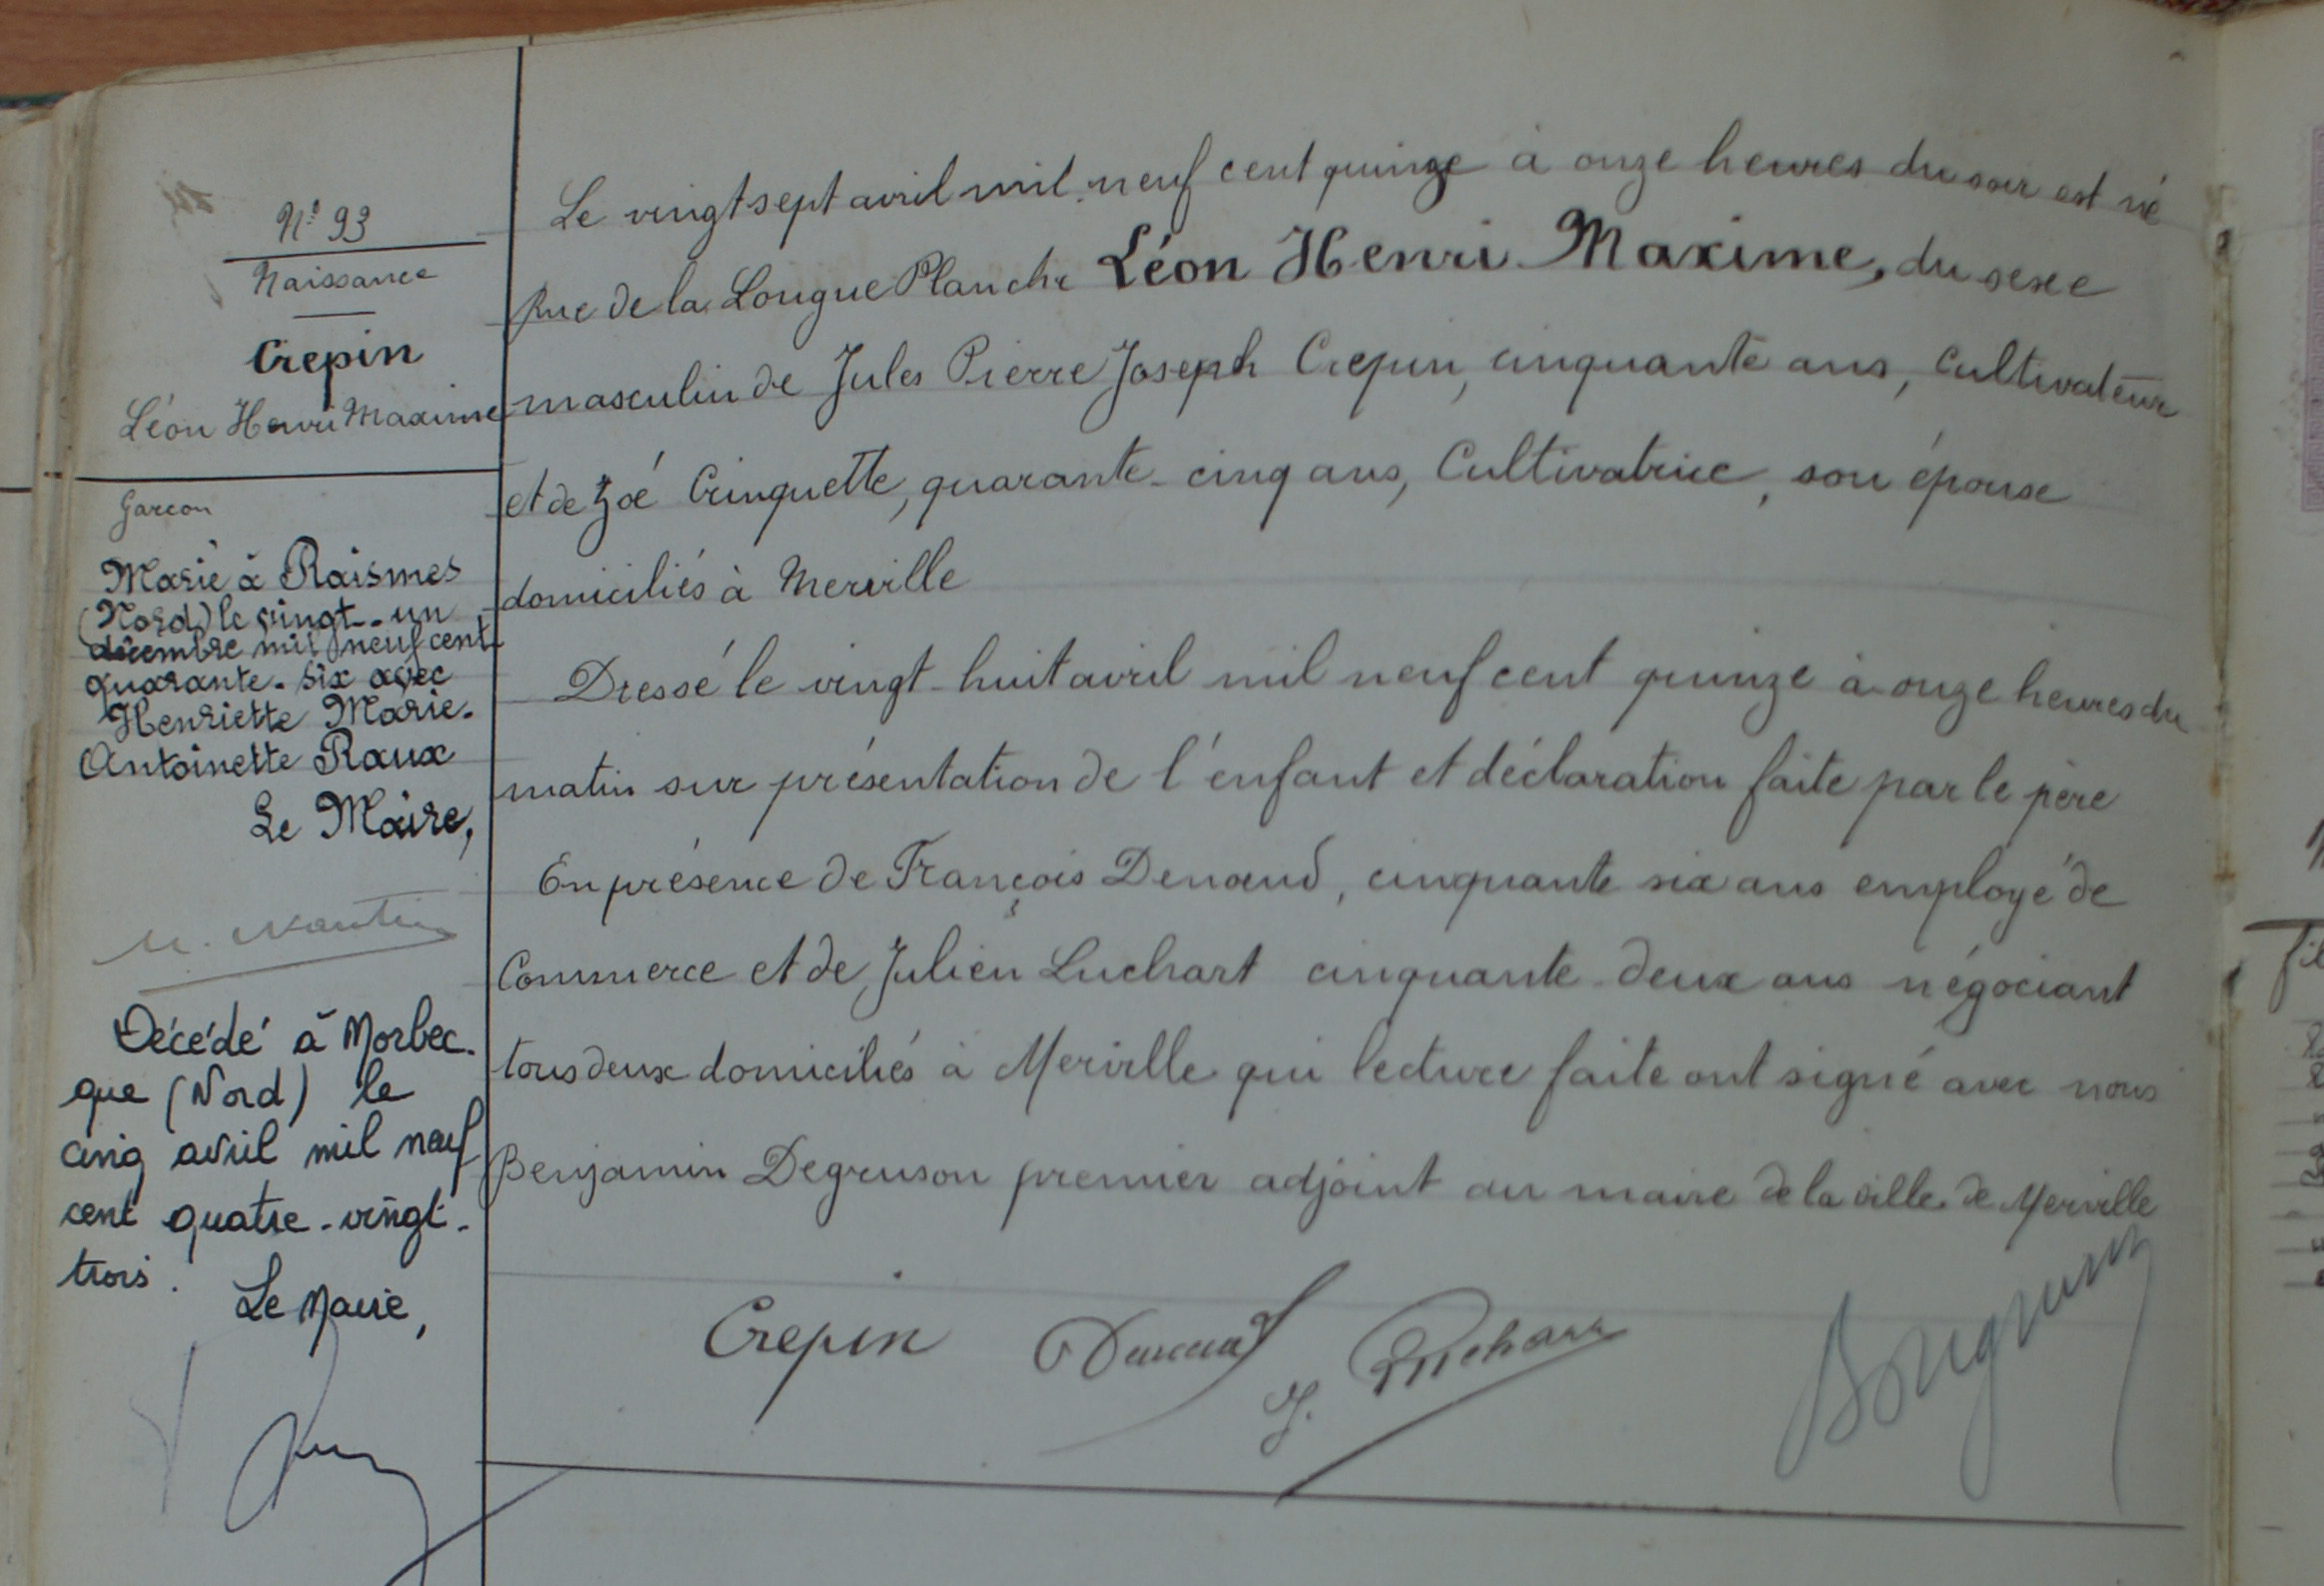 N° 93
Naissance
Crepin
Léon Henri Maxime
Garçon
Marié à Raismes
(Nord) le vingt-un
décembre mil neuf cent
quarante-six avec
Henriette Marie-
Antoinette Raux
Le Maire,
Décédé à Morbec-
que (Nord) le
cinq avril mil neuf
cent quatre-vingt-
trois.
Le Maire,
Le vingt sept avril mil neuf cent quinze à onze heures du soir est né
Rue de la Longue Planche Léon Henri Maxime, du sexe
masculin de Jules Pierre Joseph Crepin, cinquante ans, Cultivateur
et de Zoé Crinquette, quarante-cinq ans, Cultivatrice, son épouse
domiciliés à Merville
Dressé le vingt-huit avril mil neuf cent quinze à onze heures du
matin sur présentation de l'enfant et déclaration faite par le père
En présence de François Denœud, cinquante six ans employé de
Commerce et de Julien Luchart cinquante-deux ans négociant
tous deux domiciliés à Merville qui lecture faite ont signé avec nous
Benjamin Degruson premier adjoint au maire de la ville de Merville
Crepin Denœud
J. Luchart